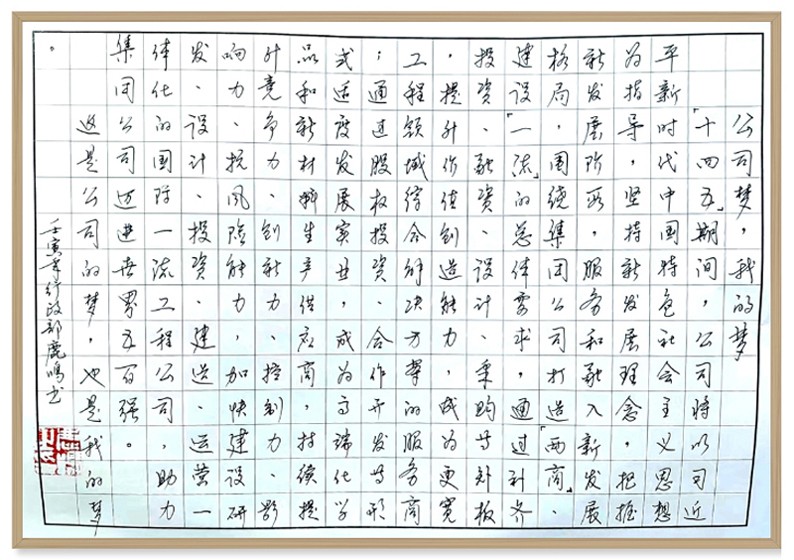 公司梦，我的梦
「十四五」期间，公司将以习近
平新时代中国特色社会主义思想
为指导，坚持新发展理念，把握
新发展阶段，服务和融入新发展
格局，围绕集团公司打造「两商」、
建设「一流」的总体要求，通过补齐
投资、融资、设计、采购等短板
，提升价值创造能力，成为更宽
工程领域综合解决方案的服务商
；通过股权投资、合作开发等形
式适度发展实业，成为高端化学
品和新材料生产供应商，持续提
升竞争力、创新力、控制力、影
响力、抗风险能力，加快建设研
发、设计、投资、建造、运营一
体化的国际一流工程公司，助力
集团公司迈进世界五百强。
这是公司的梦，也是我的梦
。
壬寅年行政部鹿鸣书